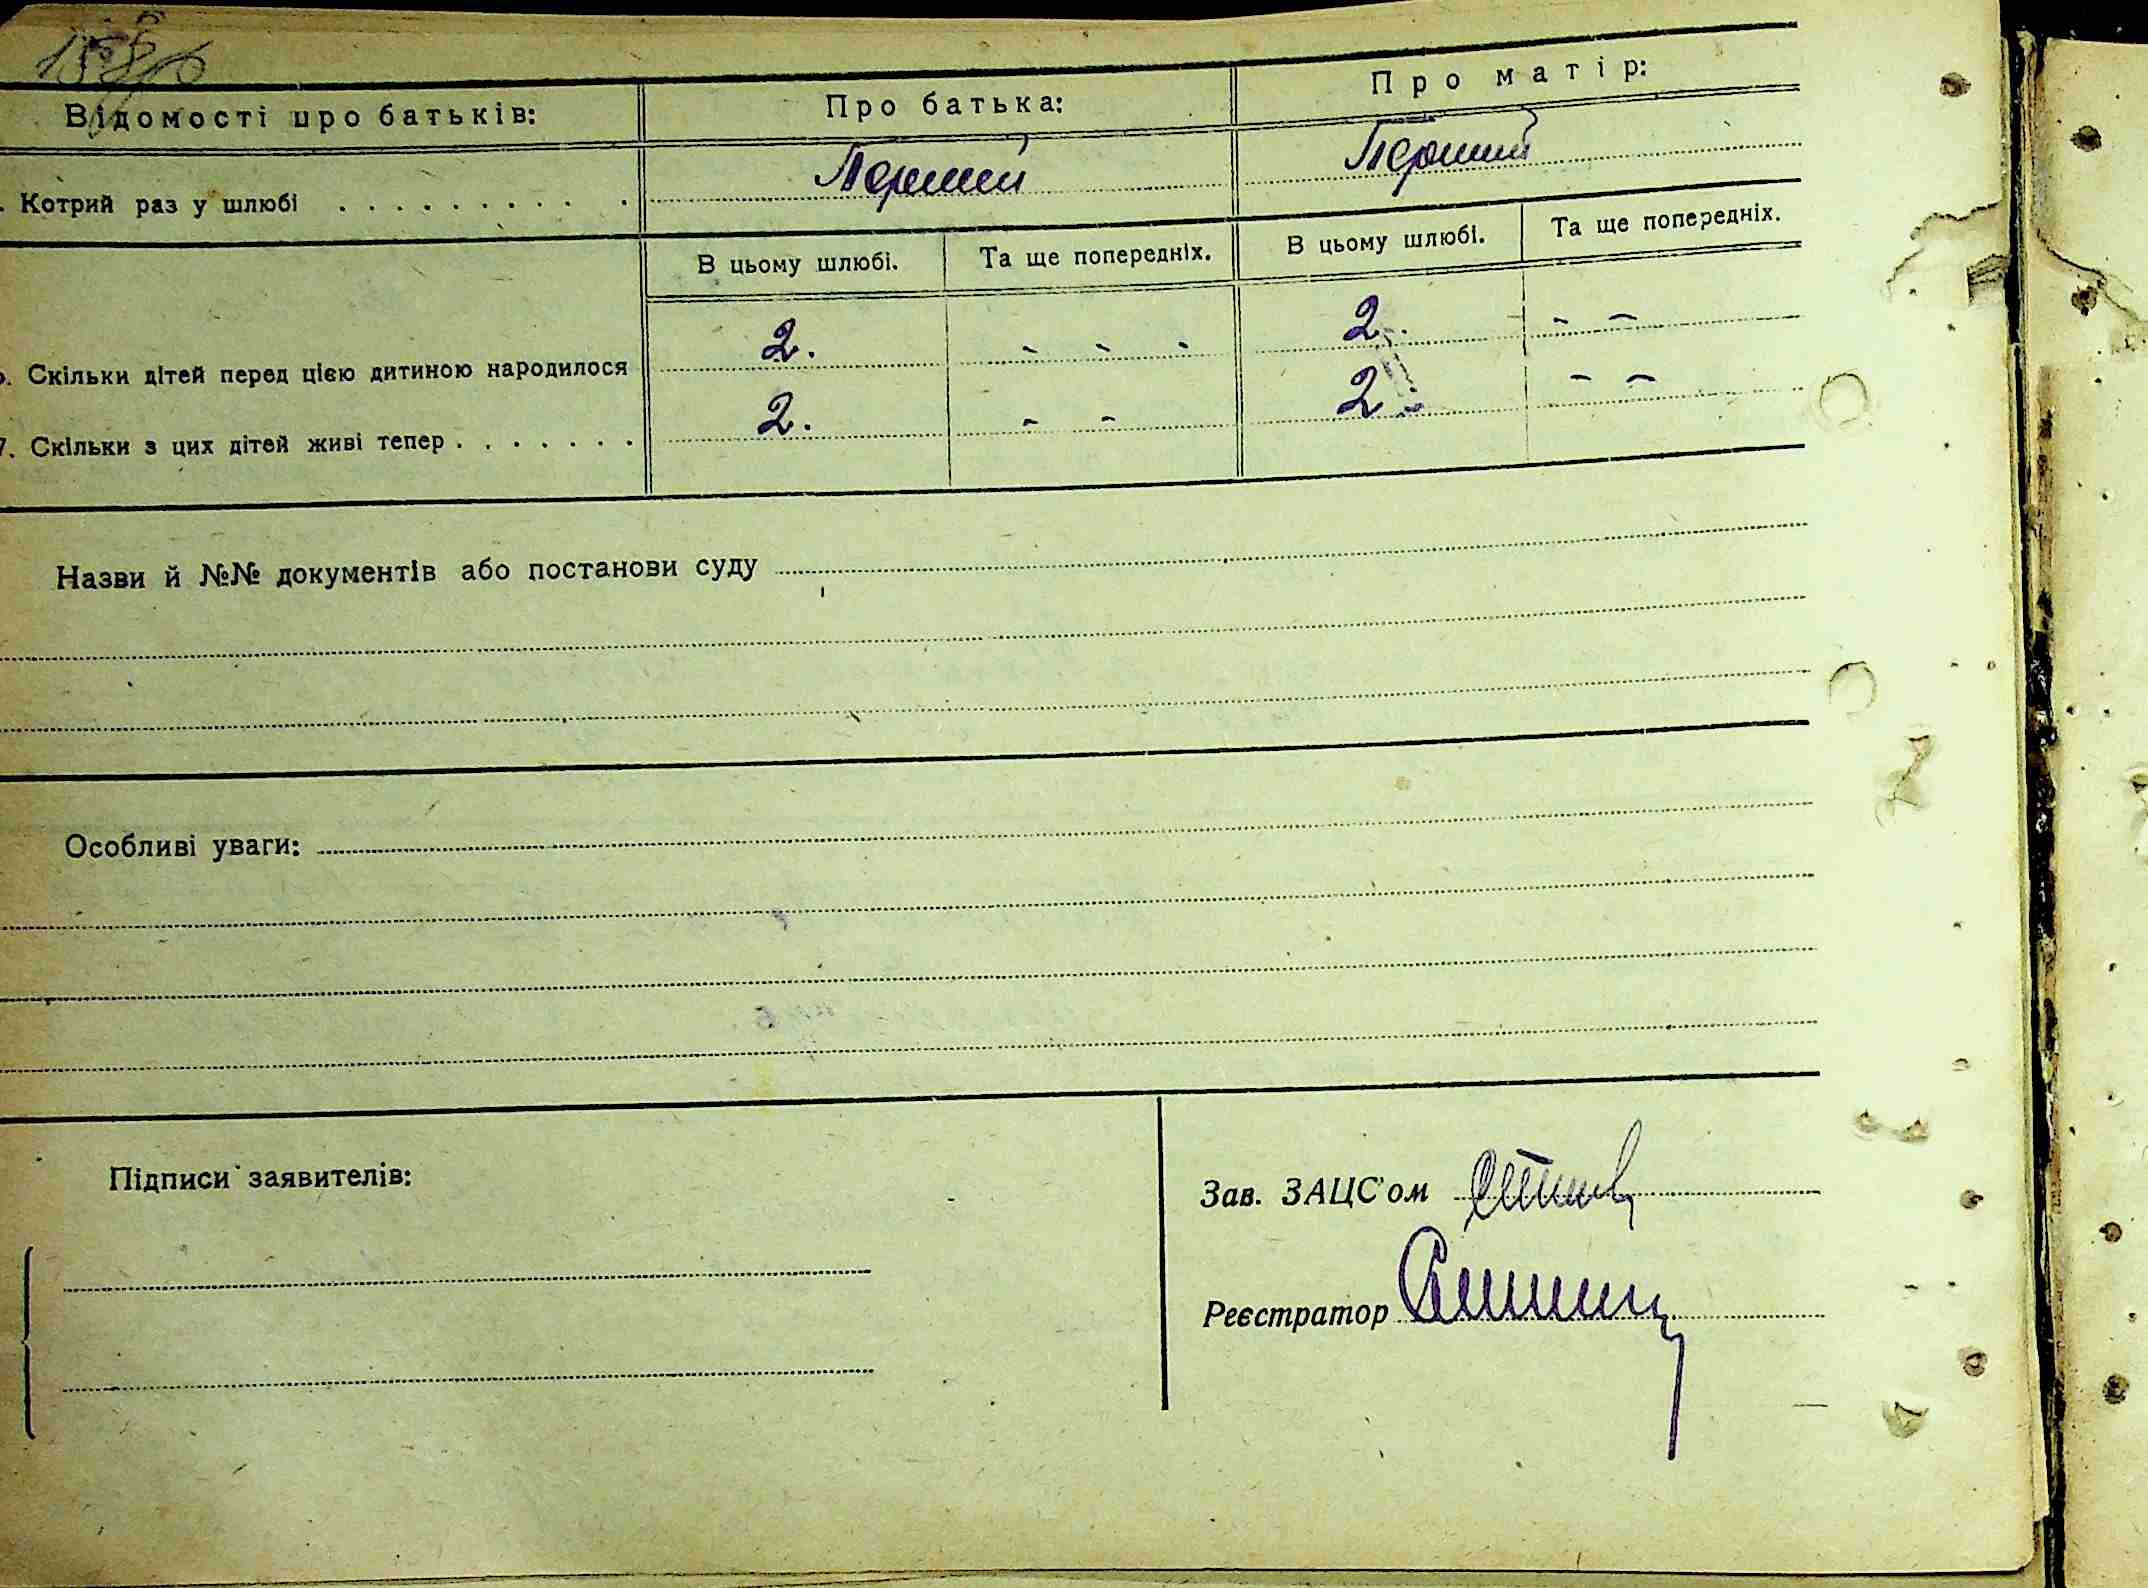 Відомості про батьків: Про батька: Про матір:
. Котрий раз у шлюбі . . . . . . . . . . Перший Перший
В цьому шлюбі. Та ще попередніх. В цьому шлюбі. Та ще попередніх.
6. Скільки дітей перед цією дитиною народилося 2. - - - 2. - -
7. Скільки з цих дітей живі тепер . . . . . . . 2. - - 2. - -
Назви й №№ документів або постанови суду
Особливі уваги:
Підписи заявителів:
Зав. ЗАЦС'ом
Реєстратор